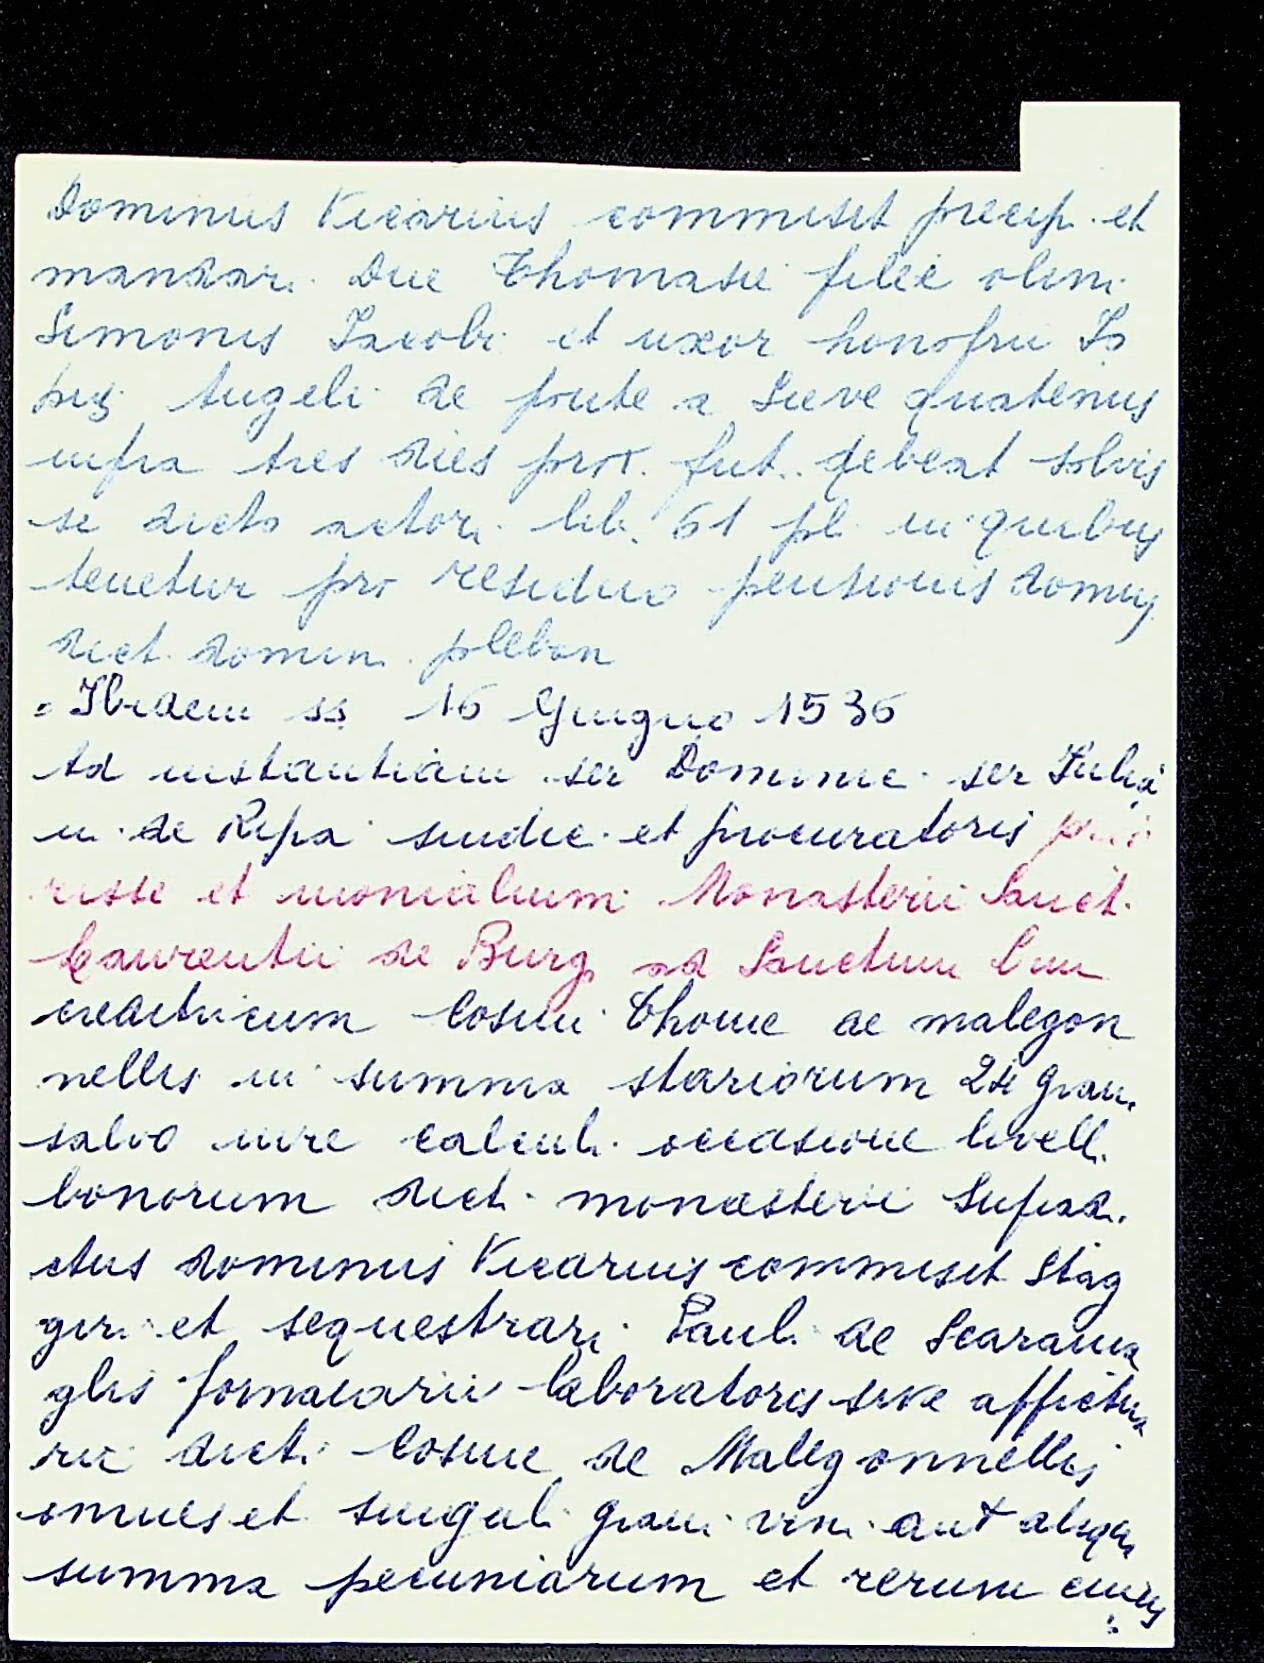 Dominus Vicarius commisit precip. et
mandar. Due Thomasie filie olim
Simonis Iacobi et uxor honofrii Io
Angeli de ponte a Sieve quatenus
infra tres dies prox. fut. debeat solvis
se dicto actori lib. 61 pl. in quibus
tenetur pro residuo pensionis domus
dict. domin. plebon
Ibidem ss 16 Giugno 1536
Ad instantiam ser Dominic. ser Julia
n. de Ripa sindic. et procuratoris prio
risse et monialium Monasterii Sanct.
Laurentii de Burg. ad Sanctum Cun
creditricum Cosmi Thome de malegon
nellis in summa stariorum 24 gran.
salvo iure calculi occasione livell.
bonorum dict. monasterii Suprad.
ctus dominus Vicarius commisit Stag
giri et sequestrari Pauli de Scarama
glis fornaciarii laboratoris sive affictua
rii dicti Cosme de Malegonnellis
omnes et singul. grani vini aut aliqua
summa pecuniarum et rerum cuius